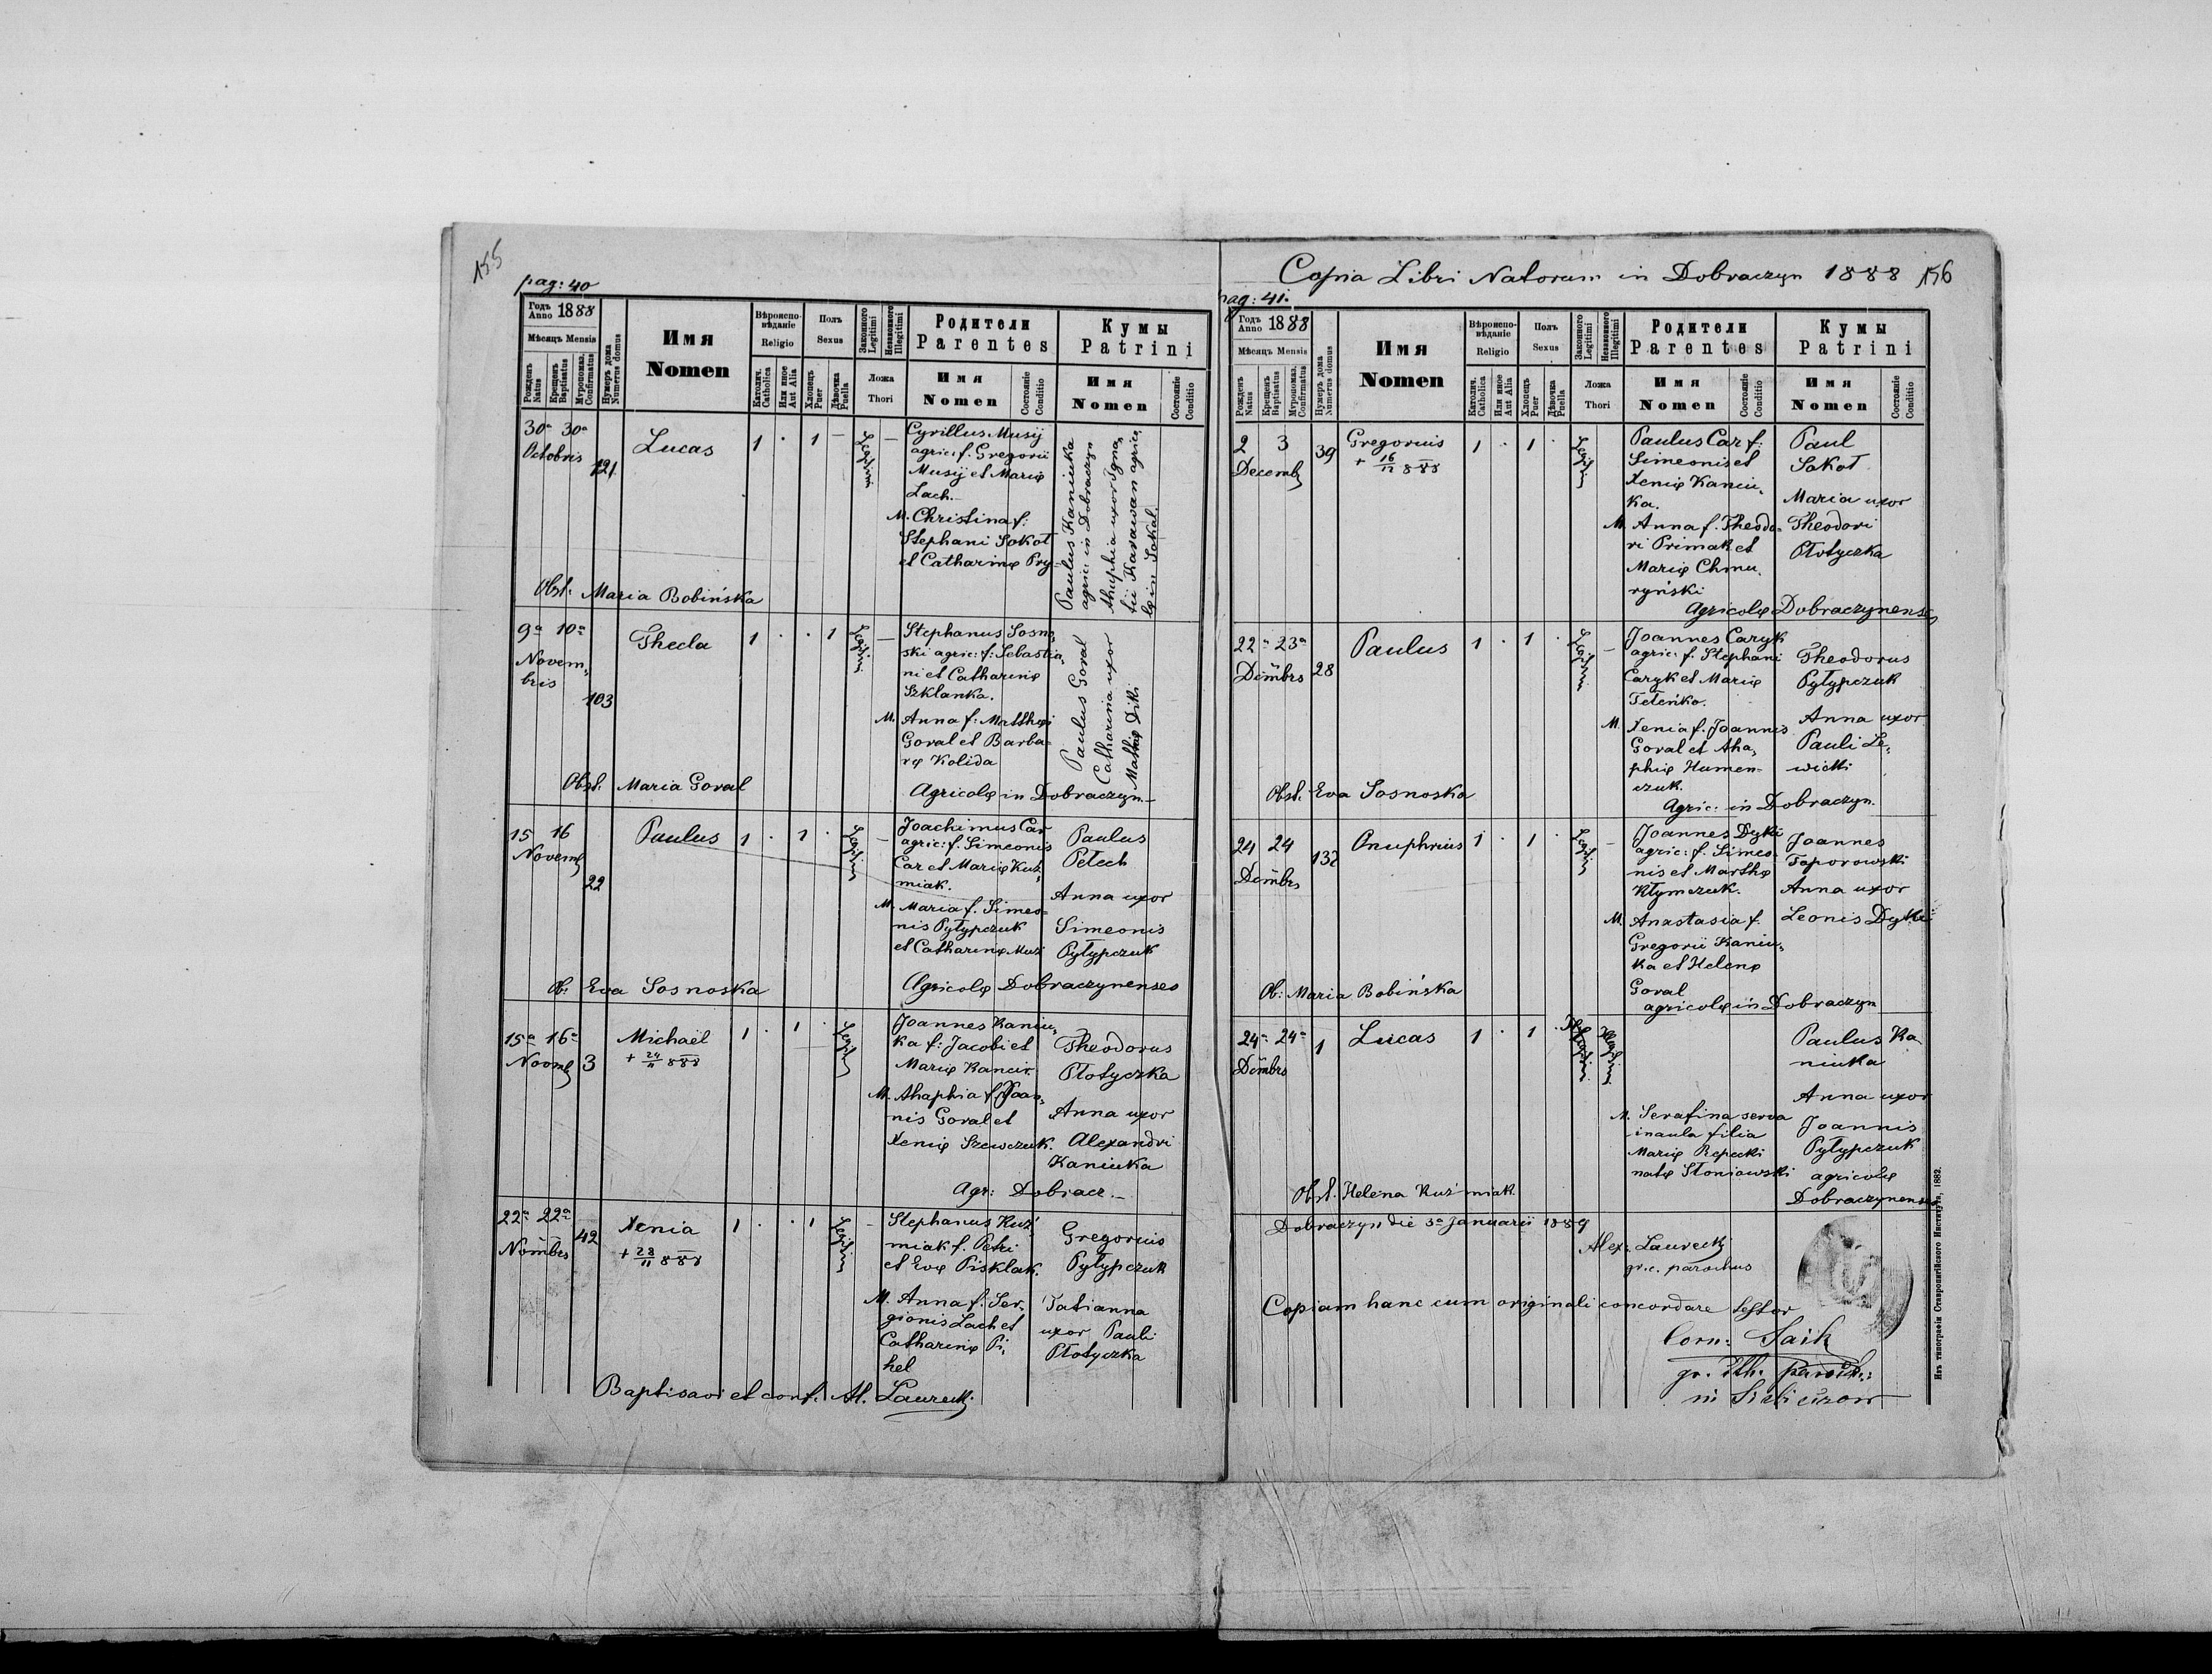 155
pag: 40
Годъ Anno 1888
Мѣсяцъ Mensis
Рожденъ Natus
Крещенъ Baptisatus
Мѵропомаз. Confirmatus
Нумеръ дома Numerus domus
Имя
Nomen
Вѣроиспо-
вѣданіе
Religio
Католич. Catholica
Или иное Aut Alia
Полъ
Sexus
Хлопецъ Puer
Дѣвочка Puella
Законного Legitimi
Незаконного Illegitimi
Ложа
Thori
Родители
Parentes
Имя
Nomen
Состояніе Conditio
Кумы
Patrini
Имя
Nomen
Состояніе Conditio
30a 30a
Octobris
121
Lucas
1 . 1 —
Legitimi
Cyrillus Musij
agric: f. Gregorii
Musij et Mariæ
Lach.
M. Christina f:
Stephani Sokoł
et Catharinæ Pry-
Paulus Kaniuka
agric: in Dobraczyn
Ahaphia uxor Igna,
tii Karawan agrico,
læ in Sokal.
Obst: Maria Bobińska
9a 10a
Novem,
bris
103
Thecla
1 . . 1
Legitimi
Stephanus Sosno,
ski agric: f: Sebastia,
ni et Catharinæ
Szklanka.
M. Anna f: Matthæi
Goral et Barba=
ræ Kolida
Paulus Goral
Catharina uxor
Mathæ Diki
Obst. Maria Goral
Agricolæ in Dobraczyn.
15 16
Novemb
22
Paulus
1 . 1 .
Legitimi
Joachimus Car
agric: f. Simeonis
Car et Mariæ Kuź,
miak.
M. Maria f. Simeo=
nis Pyłypczuk
et Catharinæ Muź
Paulus
Pełech
Anna uxor
Simeonis
Pyłypczuk
Ob: Eva Sosnoska
Agricolæ Dobraczynenses
15a 16a
Novmb
3
Michaël
+ 24/11 888
1 . 1 .
Legitimi
Joannes Kaniu,
ka f: Jacobi et
Mariæ Kancir.
M. Ahaphia f. Joan,
nis Goral et
Xeniæ Szewczuk.
Theodorus
Płotyczka
Anna uxor
Alexandri
Kaniuka
Agr: Dobracz.
22a 22a
Nombrs
42
Xenia
+ 28/11 888
1 . . 1
Legitimi
Stephanus Kuź,
miak f. Petri
et Evæ Pisklak.
M. Anna f. Ser,
gionis Lach et
Catharinæ Pi,
hel
Gregorius
Pyłypczuk
Tatianna
uxor Pauli
Płotyczka
Baptisavi et conf. Al. Laurecki
Copia Libri Natorum in Dobraczyn 1888 156
pag: 41.
Годъ Anno 1888
Мѣсяцъ Mensis
Рожденъ Natus
Крещенъ Baptisatus
Мѵропомаз. Confirmatus
Нумеръ дома Numerus domus
Имя
Nomen
Вѣроиспо-
вѣданіе
Religio
Католич. Catholica
Или иное Aut Alia
Полъ
Sexus
Хлопецъ Puer
Дѣвочка Puella
Законного Legitimi
Незаконного Illegitimi
Ложа
Thori
Родители
Parentes
Имя
Nomen
Состояніе Conditio
Кумы
Patrini
Имя
Nomen
Состояніе Conditio
2 3
Decemb
39
Gregorius
+ 16/12 888
1 . 1 .
Legitimi
Paulus Car f:
Simeonis et
Xeniæ Kaniu,
ka.
M. Anna f. Theodo=
ri Primak et
Mariæ Chmu,
ryński
Paul
Sokoł
Maria uxor
Theodori
Płotyczka
Agricolæ Dobraczynenses
22a 23a
Dombrs
28
Paulus
1 . 1 .
Legitimi
Joannes Caryk
agric: f. Stephani
Caryk et Mariæ
Teteńko.
M. Xenia f. Joannis
Goral et Aha,
phiæ Humen=
czuk.
Theodorus
Pyłypczuk
Anna uxor
Pauli Le,
wicki
Obst. Eva Sosnoska
Agric: in Dobraczyn.
24 24
Dombrs
132
Onuphrius
1 . 1 .
Legitimi
Joannes Dyki
agric: f. Simeo-
nis et Marthæ
Kłymczuk.
M. Anastasia f.
Gregorii Kaniu,
ka et Helenæ
Goral
Joannes
Toporowski
Anna uxor
Leonis Dyki
Ob: Maria Bobińska
agricolæ in Dobraczyn
24a 24a
Dombrs
1
Lucas
1 . 1 .
Illegitimi
M. Serafina serva
in aula filia
Mariæ Repecki
natæ Słoniowski
Paulus Ka
niuka
Anna uxor
Joannis
Pyłypczuk
agricolæ
Dobraczynenses
Obst. Helena Kuźmiak
Dobraczyn die 3a Januarii 1889
Alex: Laurecki
gr. c. parochus
Copiam hanc cum originali concordare testor
Corn:
gr. rth. paroch.:
in
Изъ типографіи Ставропигійского Института, 1882.